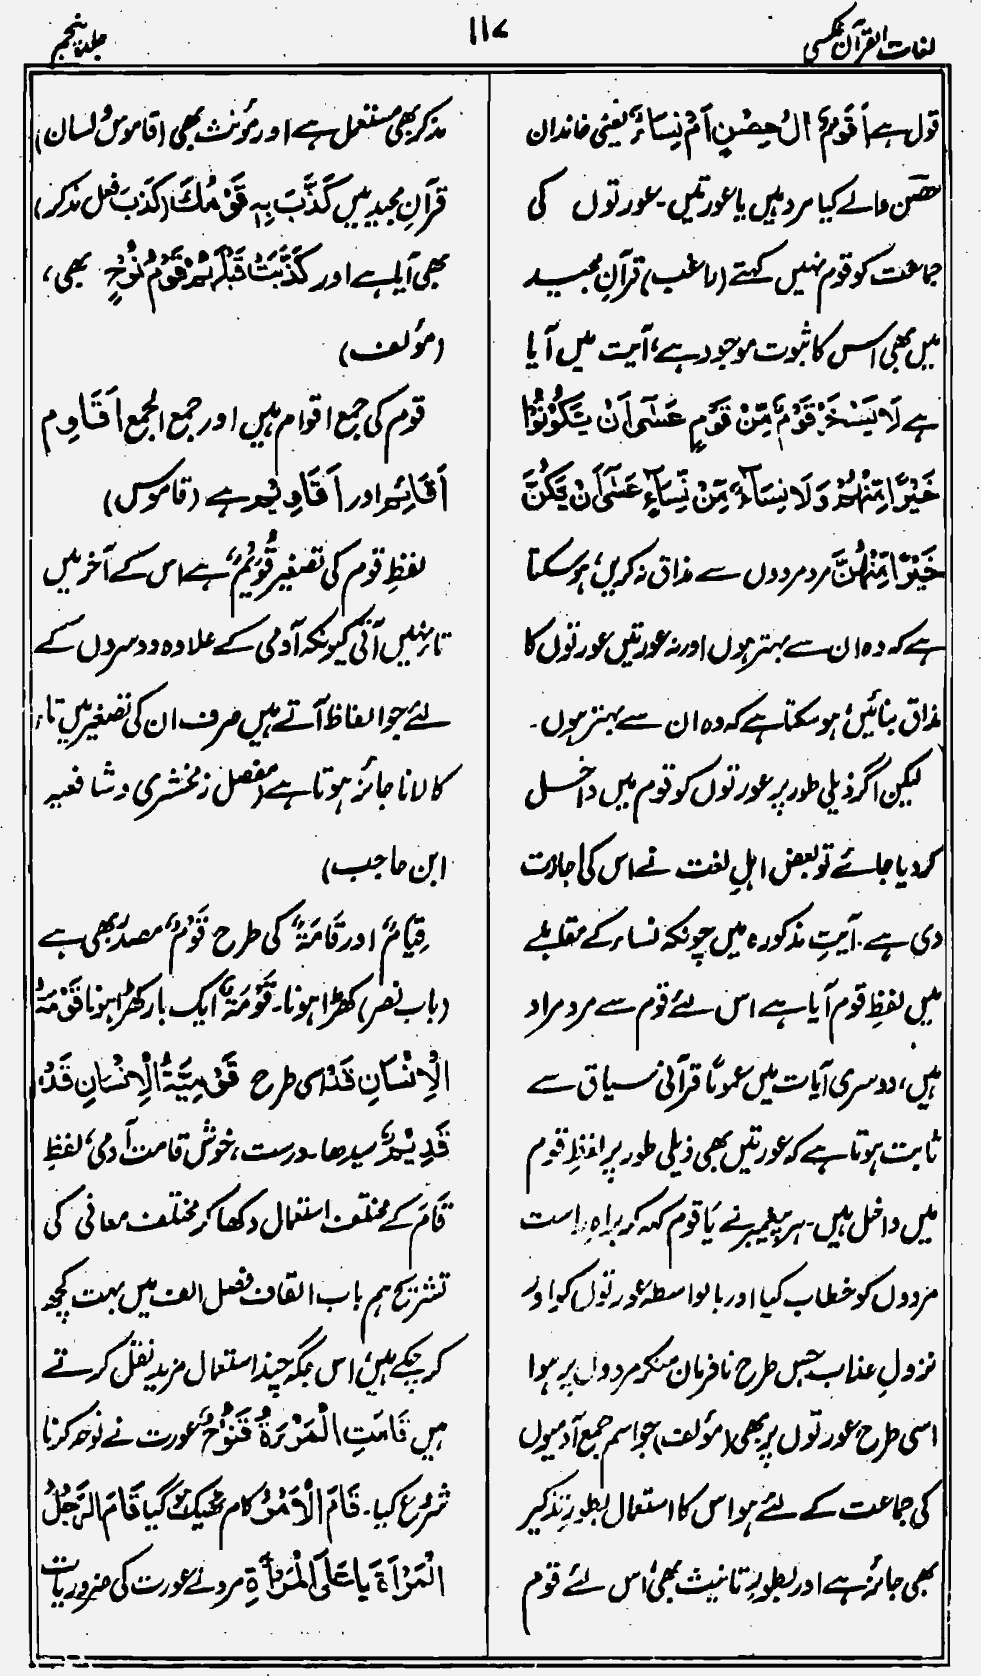 لغات القرآن عکسی
۱۱۷
جلد پنجم
قول ہے اَقَوْمٌ اٰلُ حِصْنٍ اَمْ نِسَاءٌ یعنی خاندان
حصن والے کیا مرد ہیں یا عورتیں۔ عورتوں کی
جماعت کو قوم نہیں کہتے (راغب) قرآنِ مجید
میں بھی اس کا ثبوت موجود ہے، آیت میں آیا
ہے لَا يَسْخَرْ قَوْمٌ مِّنْ قَوْمٍ عَسٰٓى اَنْ يَّكُوْنُوْا
خَيْرًا مِّنْهُمْ وَلَا نِسَآءٌ مِّنْ نِّسَآءٍ عَسٰٓى اَنْ يَّكُنَّ
خَيْرًا مِّنْهُنَّ مرد مردوں سے مذاق نہ کریں، ہو سکتا
ہے کہ وہ ان سے بہتر ہوں اور نہ عورتیں عورتوں کا
مذاق بنائیں، ہو سکتا ہے کہ وہ ان سے بہتر ہوں۔
لیکن اگر ذیلی طور پر عورتوں کو قوم میں داخل
کر دیا جائے تو بعض اہلِ لغت نے اس کی اجازت
دی ہے۔ آیتِ مذکورہ میں چونکہ نساء کے مقابلے
میں لفظِ قوم آیا ہے اس لئے قوم سے مرد مراد
ہیں، دوسری آیات میں عموماً قرآنی سیاق سے
ثابت ہوتا ہے کہ عورتیں بھی ذیلی طور پر لفظِ قوم
میں داخل ہیں۔ ہر پیغمبر نے یَا قوم کہہ کر براہِ راست
مردوں کو خطاب کیا اور بالواسطہ عورتوں کو، اور
نزولِ عذاب جس طرح نافرمان منکر مردوں پر ہوا
اسی طرح عورتوں پر بھی (مؤلف) جو اسم جمع آدمیوں
کی جماعت کے لئے ہو اس کا استعمال بطورِ تذکیر
بھی جائز ہے اور بطورِ تانیث بھی، اس لئے قوم
مذکر بھی مستعمل ہے اور مؤنث بھی (قاموس و لسان)
قرآنِ مجید میں كَذَّبَ بِهٖ قَوْمُكَ (کَذَّبَ فعل مذکر)
بھی آیا ہے اور كَذَّبَتْ قَبْلَهُمْ قَوْمُ نُوْحٍ بھی،
(مؤلف)
قوم کی جمع اقوام ہیں اور جمع الجمع اَقَاوِم
اَقَائِم اور اَقَاوِیْم ہے (قاموس)
لفظِ قوم کی تصغیر قُوَیْمٌ ہے اس کے آخر میں
تاء نہیں آتی کیونکہ آدمی کے علاوہ دوسروں کے
لئے جو الفاظ آتے ہیں صرف ان کی تصغیر میں تاء
کا لانا جائز ہوتا ہے (مفصل زمخشری و شافعیہ
ابن حاجب)
قِیَامٌ اور قَامَةٌ کی طرح قَوْمٌ مصدر بھی ہے
(باب نصر) کھڑا ہونا۔ قَوْمَةٌ ایک بار کھڑا ہونا قَوْمَةُ
الْاِنْسَانِ قَدُّهٗ اسی طرح قَوْمِيَّةُ الْاِنْسَانِ قَدُّهٗ
قَدِیْمٌ سیدھا۔ درست، خوش قامت آدمی، لفظِ
قَامَ کے مختلف استعمال دکھا کر مختلف معانی کی
تشریح ہم باب القاف فصل الف میں بہت کچھ
کر چکے ہیں، اس جگہ چند استعمال مزید نقل کرتے
ہیں قَامَتِ الْمَرْءَةُ تَنُوْحُ عورت نے نوحہ کرنا
شروع کیا۔ قَامَ الْاَمْرُ کام ٹھیک ہو گیا قَامَ الرَّجُلُ
الْمَرْاَةَ یا عَلَى الْمَرْاَةِ مرد نے عورت کی ضروریات